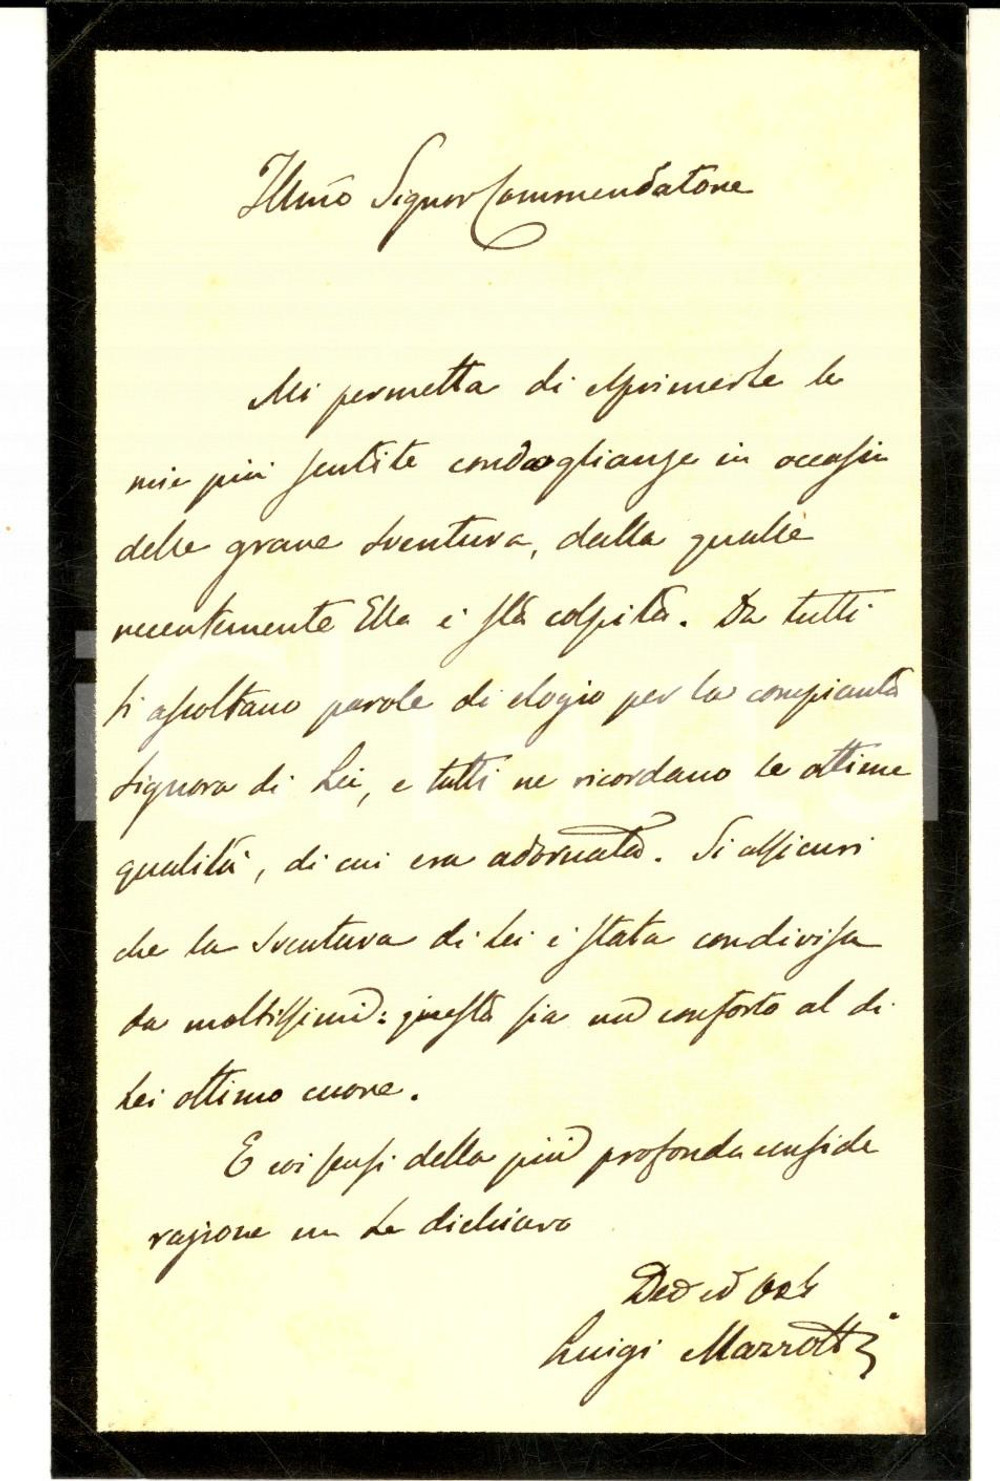 Illmo Signor Commendatore
Mi permetta di esprimerle le
mie più sentite condoglianze in occasion
delle grave sventura, dalla quale
recentemente Ella è sta colpita. Da tutti
si ascoltano parole di elogio per la compianta
Signora di Lei, e tutti ne ricordano le ottime
qualità, di cui era adornata. Si assicuri
che la sventura di Lei è stata condivisa
da moltissimi: questa sia un conforto al di
Lei ottimo cuore.
E coi sensi della più profonda conside
razione me Le dichiaro
Luigi Mazzotti